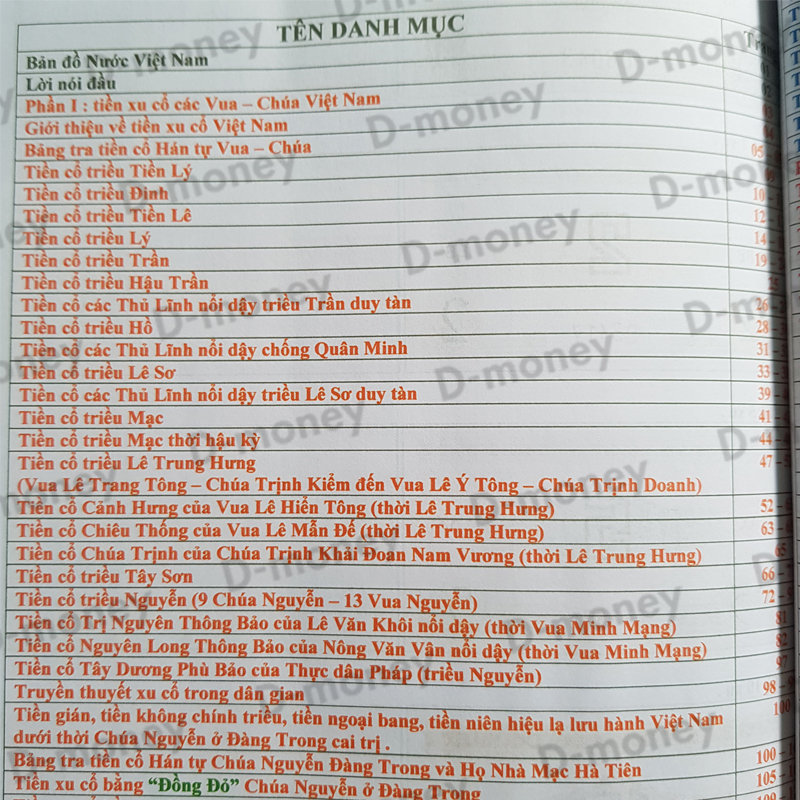 TÊN DANH MỤC
Bản đồ Nước Việt Nam
Lời nói đầu 02
Phần I : tiền xu cổ các Vua – Chúa Việt Nam 03
Giới thiệu về tiền xu cổ Việt Nam 04
Bảng tra tiền cổ Hán tự Vua – Chúa 05 -
Tiền cổ triều Tiền Lý
Tiền cổ triều Đinh 10 -
Tiền cổ triều Tiền Lê 12 -
Tiền cổ triều Lý 14 -
Tiền cổ triều Trần 19 -
Tiền cổ triều Hậu Trần 25
Tiền cổ các Thủ Lĩnh nổi dậy triều Trần duy tàn 26 -
Tiền cổ triều Hồ 28 -
Tiền cổ các Thủ Lĩnh nổi dậy chống Quân Minh 31 -
Tiền cổ triều Lê Sơ 33 -
Tiền cổ các Thủ Lĩnh nổi dậy triều Lê Sơ duy tàn 39 -
Tiền cổ triều Mạc 41 -
Tiền cổ triều Mạc thời hậu kỳ 44 -
Tiền cổ triều Lê Trung Hưng 47 -
(Vua Lê Trang Tông – Chúa Trịnh Kiểm đến Vua Lê Ý Tông – Chúa Trịnh Doanh)
Tiền cổ Cảnh Hưng của Vua Lê Hiển Tông (thời Lê Trung Hưng) 52 -
Tiền cổ Chiêu Thống của Vua Lê Mẫn Đế (thời Lê Trung Hưng) 63 -
Tiền cổ Chúa Trịnh của Chúa Trịnh Khải Đoan Nam Vương (thời Lê Trung Hưng) 65
Tiền cổ triều Tây Sơn 66 -
Tiền cổ triều Nguyễn (9 Chúa Nguyễn – 13 Vua Nguyễn) 72 -
Tiền cổ Trị Nguyên Thông Bảo của Lê Văn Khôi nổi dậy (thời Vua Minh Mạng) 81
Tiền cổ Nguyên Long Thông Bảo của Nông Văn Vân nổi dậy (thời Vua Minh Mạng) 82
Tiền cổ Tây Dương Phù Bảo của Thực dân Pháp (triều Nguyễn) 97
Truyền thuyết xu cổ trong dân gian 98 -
Tiền gián, tiền không chính triều, tiền ngoại bang, tiền niên hiệu lạ lưu hành Việt Nam 100
dưới thời Chúa Nguyễn ở Đàng Trong cai trị .
Bảng tra tiền cổ Hán tự Chúa Nguyễn Đàng Trong và Họ Nhà Mạc Hà Tiên 100 -
Tiền xu cổ bằng “Đồng Đỏ” Chúa Nguyễn ở Đàng Trong 105 -
109
D-money